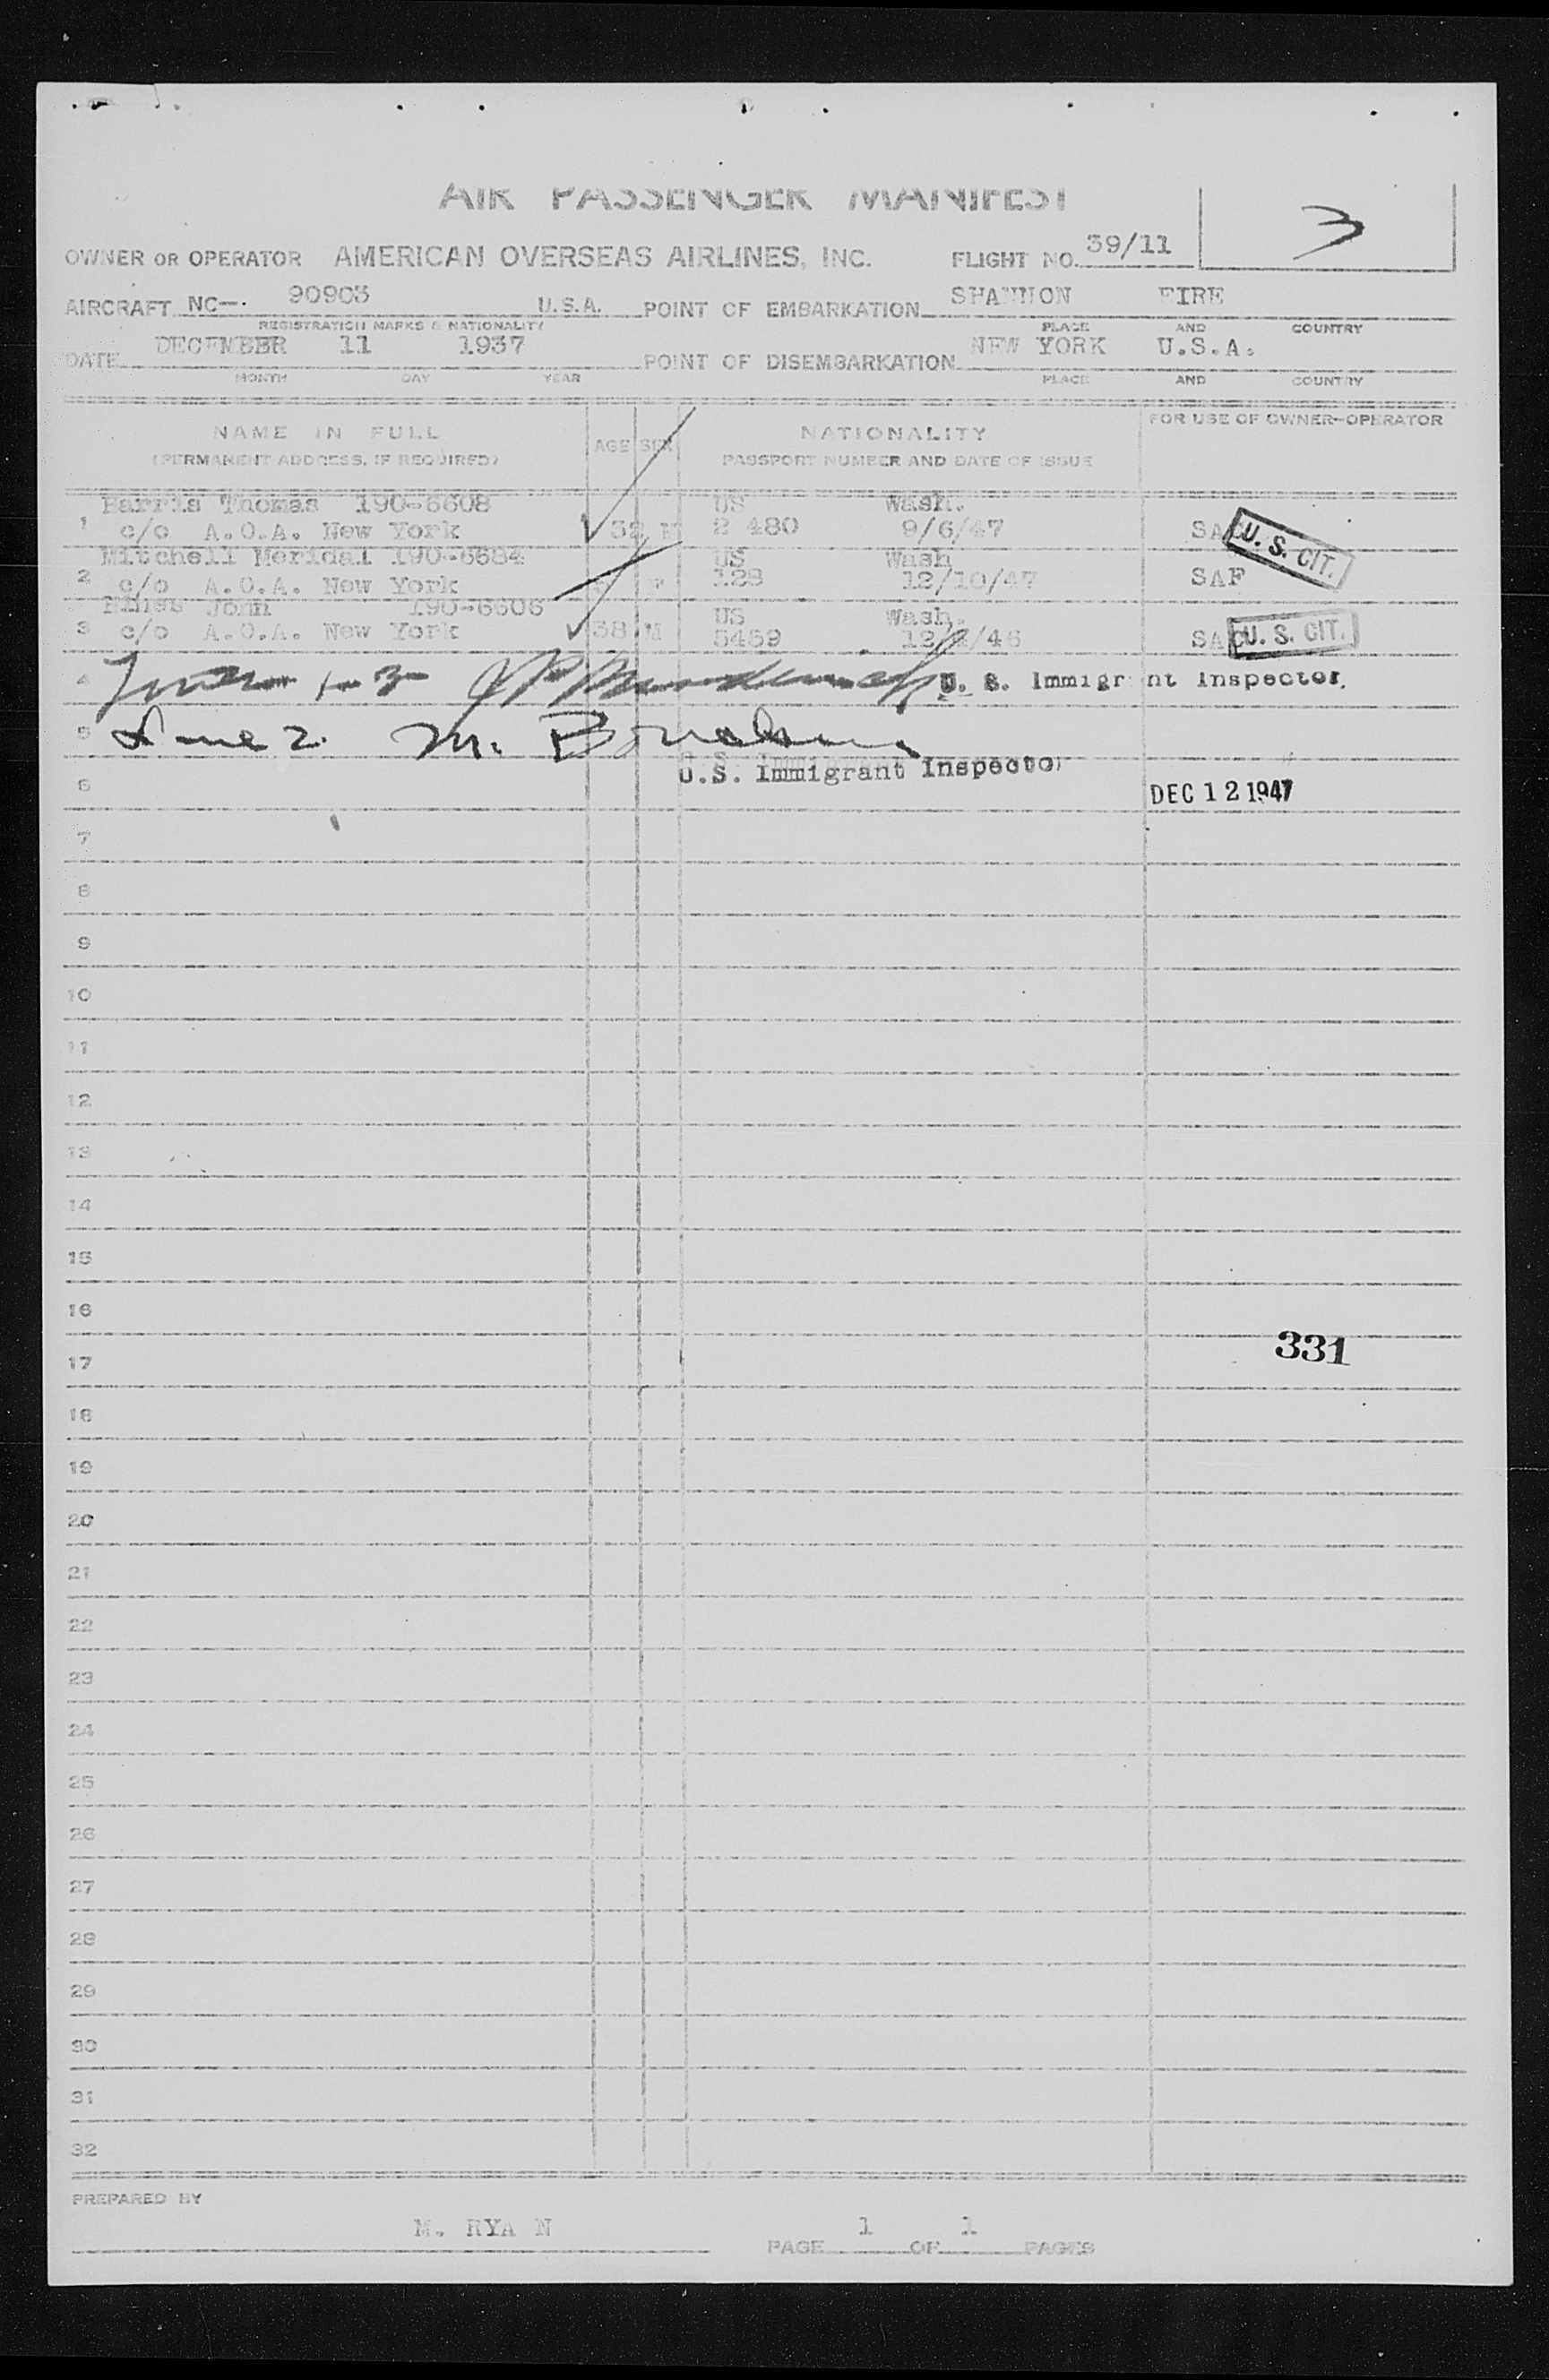 AIR PASSENGER MANIFEST
3
OWNER OR OPERATOR AMERICAN OVERSEAS AIRLINES, INC. FLIGHT NO. 39/11
AIRCRAFT NC—. 90903 U.S.A. POINT OF EMBARKATION SHANNON EIRE
REGISTRATION MARKS & NATIONALITY PLACE AND COUNTRY
DATE DECEMBER 11 1937 POINT OF DISEMBARKATION NEW YORK U.S.A.
MONTH DAY YEAR PLACE AND COUNTRY
NAME IN FULL AGE SEX NATIONALITY FOR USE OF OWNER-OPERATOR
(PERMANENT ADDRESS, IF REQUIRED) PASSPORT NUMBER AND DATE OF ISSUE
Harris Thomas 190-6608 US Wash.
1 c/o A.O.A. New York 32 M 2 480 9/6/47 SAC U. S. CIT.
Mitchell Meridal 190-6684 US Wash
2 c/o A.O.A. New York 128 12/10/47 SAF
Hines John 190-6606 US Wash.
3 c/o A.O.A. New York 38 M 5459 12/ /46 SAC U. S. CIT.
4 1-3 U. S. Immigrant Inspector.
5 Line 2. M.
U.S. Immigrant Inspector
6 DEC 12 1947
7
8
9
10
11
12
13
14
15
16
331
17
18
19
20
21
22
23
24
25
26
27
28
29
30
31
32
PREPARED BY
M. RYA N
PAGE 1 OF 1 PAGES